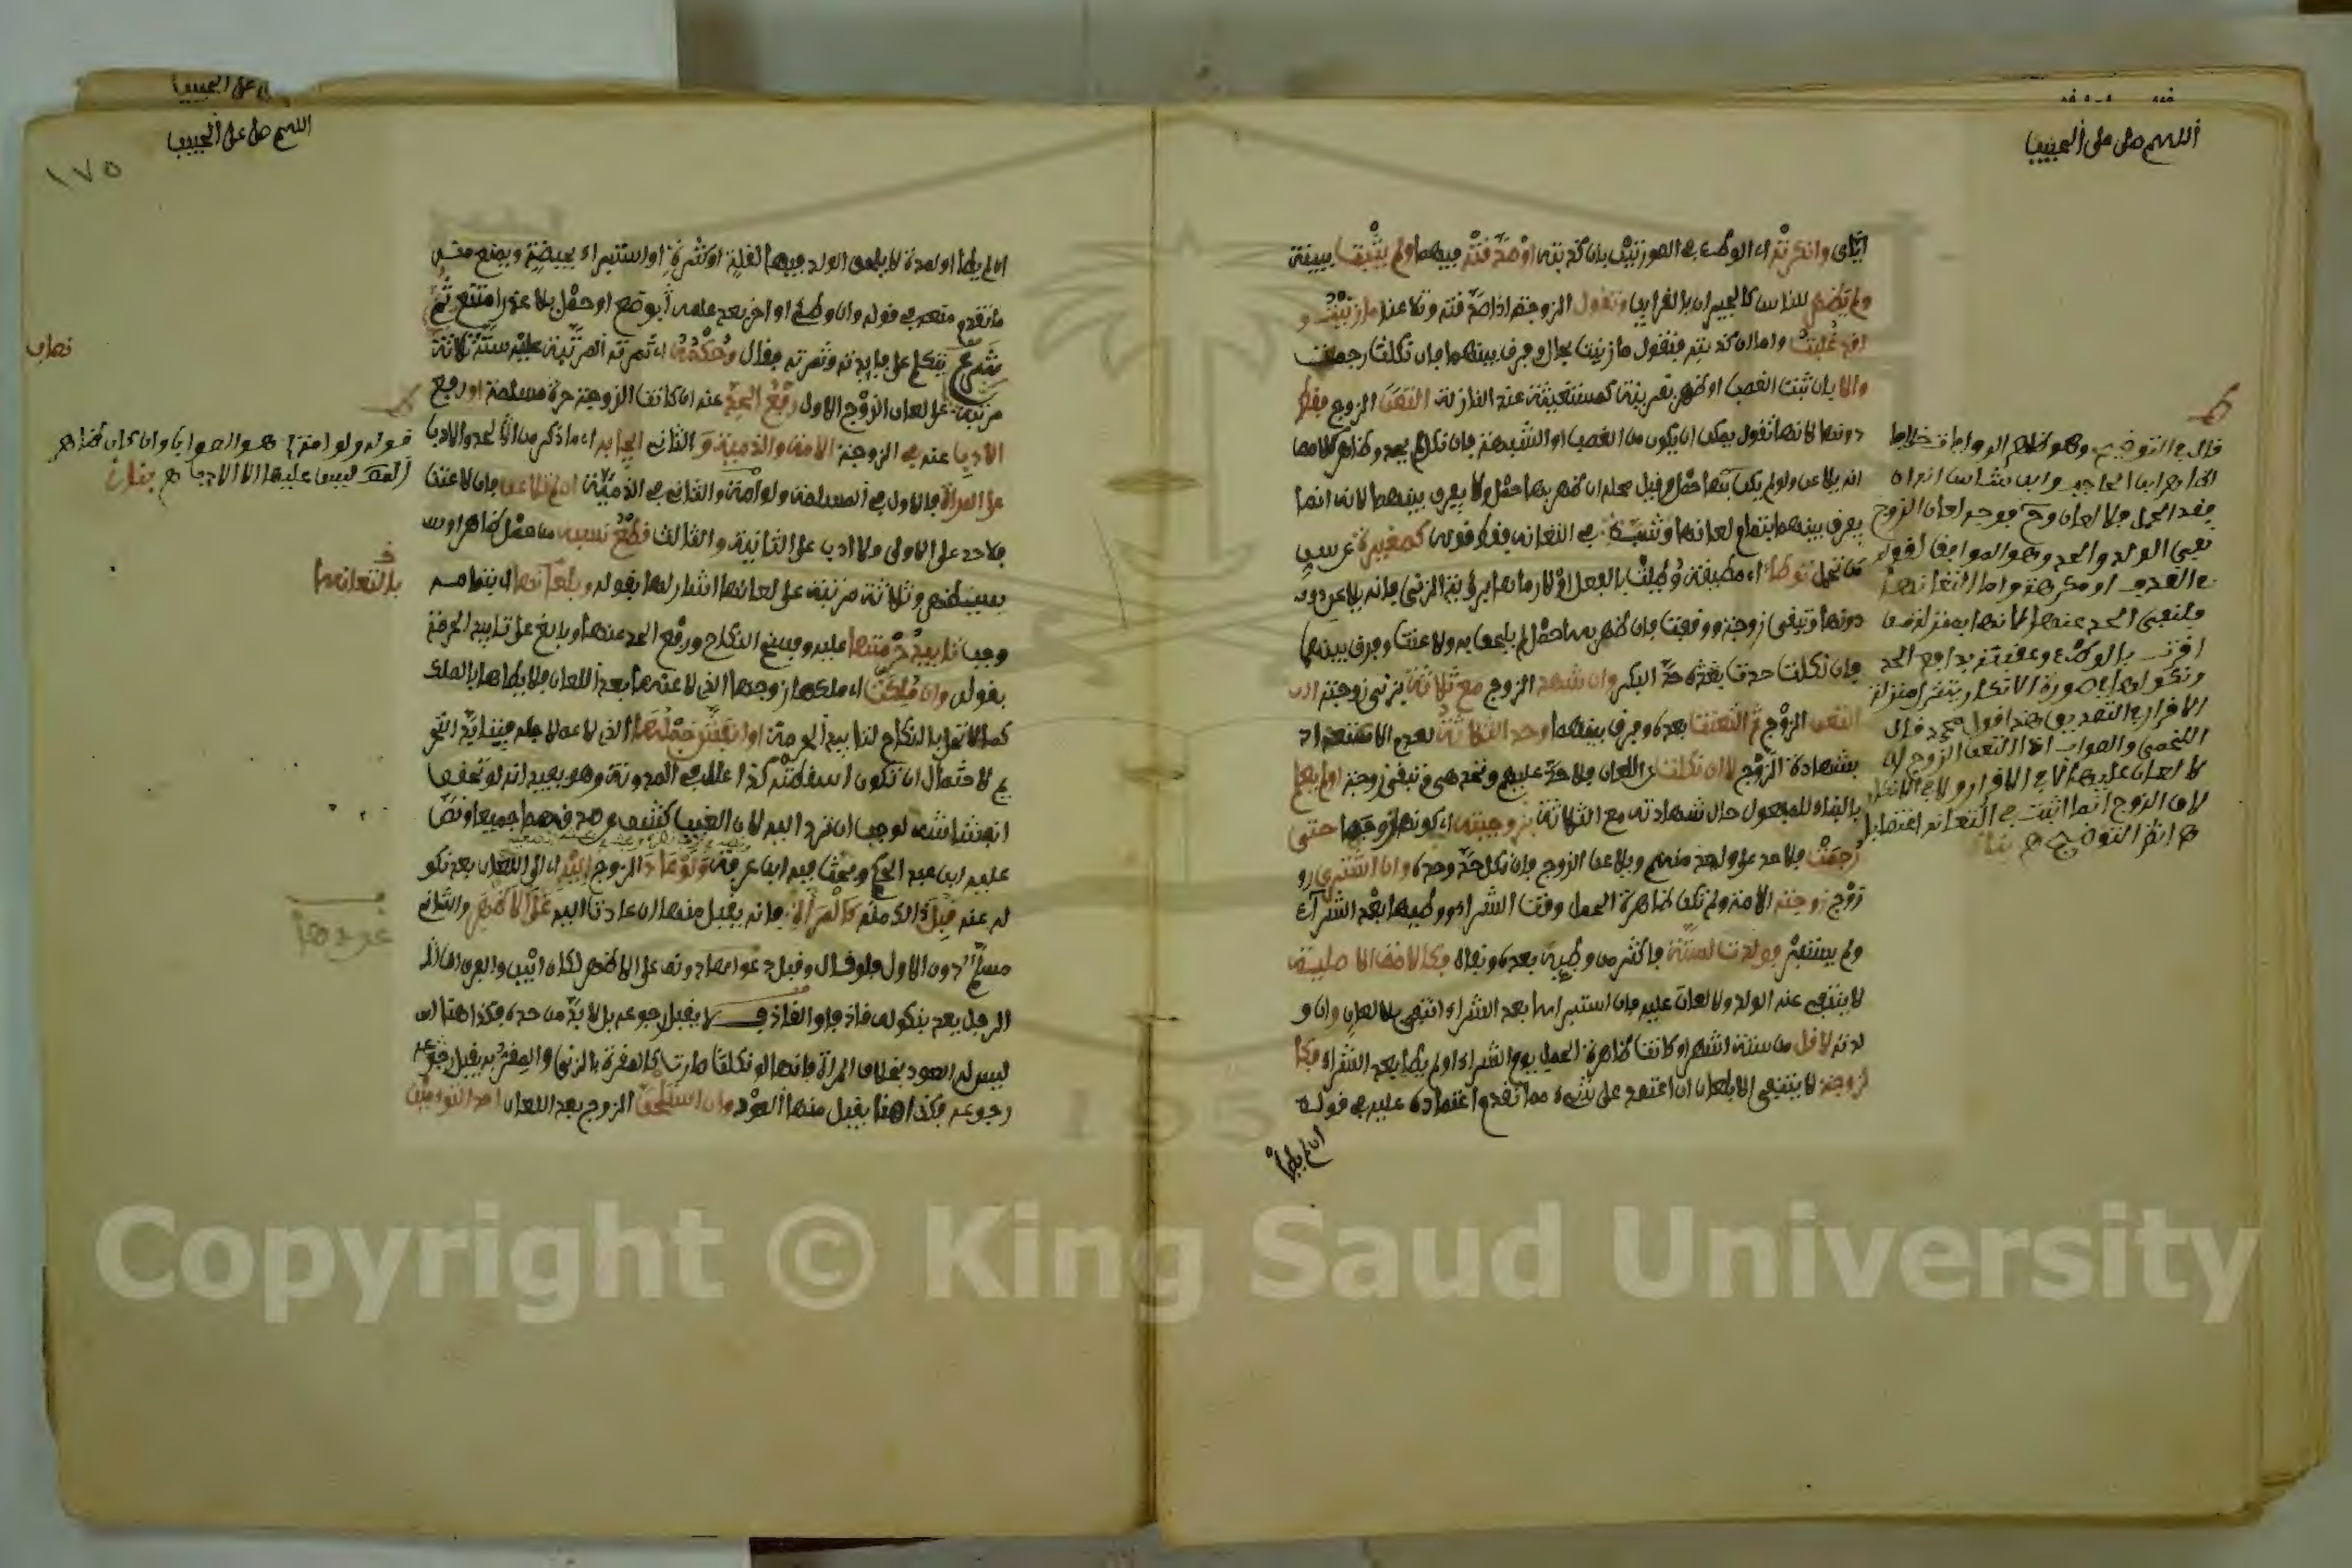 اللهم صل على الحبيب
اياى وانكرته اى الوطء فى الصورتين بان كذبته او صدقته فيهما ولم يثبت ببينة
ولم يظهر للناس كالجيران بالقرايب وتقول الزوجة اذا صدقته وتلاعنا ما زنيت و
لقد غلبت واما ان كذبته فتقول ما زنيت بحال وفرق بينهما فان نكلت رجمت
والا بان ثبت الغصب او ظهر بقرينة كمستغيثة عند النازلة التعن الزوج فقط
دونها لانها تقول يمكن ان يكون من الغصب او الشبهة فان نكل لم يحد وظاهر كلامها
انه يلاعن ولو لم يكن بها حمل وقيل محله ان ظهر بها حمل ولا يفرق بينهما لانه انما
يفرق بينهما بتمام لعانهما وشبه فى التعانه فقط قوله كصغيرة عرس
عن تحمل توطا اى مطيقة وطئت بالفعل او لا رماها برؤية الزنى فانه يلاعن دون
دونها وتبقى زوجة ووقفت فان ظهر بها حمل لم يلحق به ولاعنت وفرق بينهما
فان نكلت حدت بعده حد البكر وان شهد الزوج مع ثلاثة بزنى زوجته
التعن الزوج ثم التعنت بعده وفرق بينهما وحد الثلاثة لعدم الاعتداد
بشهادة الزوج لا ان نكلت عن اللعان فلا حد عليهم وتحد هى وتبقى زوجة او لم يعلم
بالبناء للمفعول حال شهادته مع الثلاثة بزوجيته اى كونها زوجها حتى
رجمت فلا حد على واحد منهم ويلاعن الزوج فان نكل حد وحده وان اشترى زو
زوج زوجته الامة ولم تكن ظاهرة الحمل وقت الشراء ووطئها بعد الشراء
ولم يستبر فولدت لستة فاكثر من وطيه بعده ونفاه فكالامة الاصلية
لا ينتفى عنه الولد ولا لعان عليه فان استبراها بعد الشراء انتفى بلا لعان وان و
لدته لاقل من ستة اشهر او كانت ظاهرة الحمل يوم الشراء او لم يطا بعد الشراء فكا
لزوجة لا ينتفى الا بلعان ان اعتمد على شىء مما تقدم اعتماده عليه فى قوله
ان لم يطا
قال فى التوضيح وهو ظاهر الروايات خلافا
لظاهر ابن الحاجب وابن شاس انه ان
فقد الحمل فلا لعان وح فوجه لعان الزوج
نفى الولد والحد وهو الموافق لقوله
فلنفى الحد عنها لانها بمنزلة من
اقرت بالوطء وعقبته برافع الحد
ونكولها فى صورة الانكار يتنزل منزلة
الاقرار والتصديق هذا قول محمد قال
اللخمى والصواب اذا التعن الزوج ان
لا لعان عليها لا فى الاقرار ولا فى الانكار
لان الزوج انما اثبت فى التعانه اغتصابا
اه انظر التوضيح اه بنان
اللهم صل على الحبيب
١٧٥
ان لم يطا او لمدة لا يلحق الولد فيها لقلة او كثرة او استبراء بحيضة
ما تقدم متعه فى قوله وان وطئ او اخر بعد علمه بوضع او حمل بلا عذر امتنع ثم
شرع يتكلم على فايدته وثمرته فقال وحكمه اى ثمرته المرتبة عليه ستة ثلاثة
مرتبة على لعان الزوج الاول رفع الحد عنه ان كانت الزوجة حرة مسلمة او رفع
الادب عنه فى الزوجة الامة والذمية و الثانى ايجابه اى ما ذكر من الحد والادب
على المراة فالاول فى المسلمة ولو امة والثانى فى الذمية ان لم تلاعن فان لاعنت
فلا حد على الاولى ولا ادب على الثانية والثالث قطع نسبه من حمل ظاهر او
سيظهر وثلاثة مرتبة على لعانها اشار لها بقوله وبلعانها اى بتمامه
وجب تابيد حرمتها عليه وفسخ النكاح ورفع الحد عنها وبالغ على تابيد الحرمة
بقوله وان ملكت اى ملكها زوجها الذى لاعنها بعد اللعان فلا يطاها بالملك
كما لا تحل بالنكاح لتابيد الحرمة او انفش حملها الذى لاعنها لاجله فيتابد التحر
يم لاحتمال ان تكون اسقطته كذا علله فى المدونة وهو يفيد انه لو تحقق
انفشاشه لوجب ان ترد اليه لان الغيب كشف عن صدقهما جميعا ونص
عليه ابن عبد الحكم وبحث فيه ابن عرفة ولو عاد الزوج اليه اى الى اللعان بعد نكو
له عنه قبل ذلك منه كالمراة فانه يقبل منها ان عادت اليه على الاظهر والثانى
مسلم دون الاول فلو قال وقبل عودها دونه على الاظهر لكان ابين والفرق ان
الرجل بعد نكوله قاذف والقاذف لا يقبل رجوعه بل لا بد من حده فكذا هنا
ليس له العود بخلاف المراة فانها لو نكلت صارت كالمقرة بالزنى والمقر به يقبل رجوعه
رجوعه فكذا هنا يقبل منها العود وان استلحق الزوج بعد اللعان احد التوءمين
قوله ولو امة} هو الصواب وان كان ظاهر
ليس عليها الا الادب اه بنان
بالتعانهما